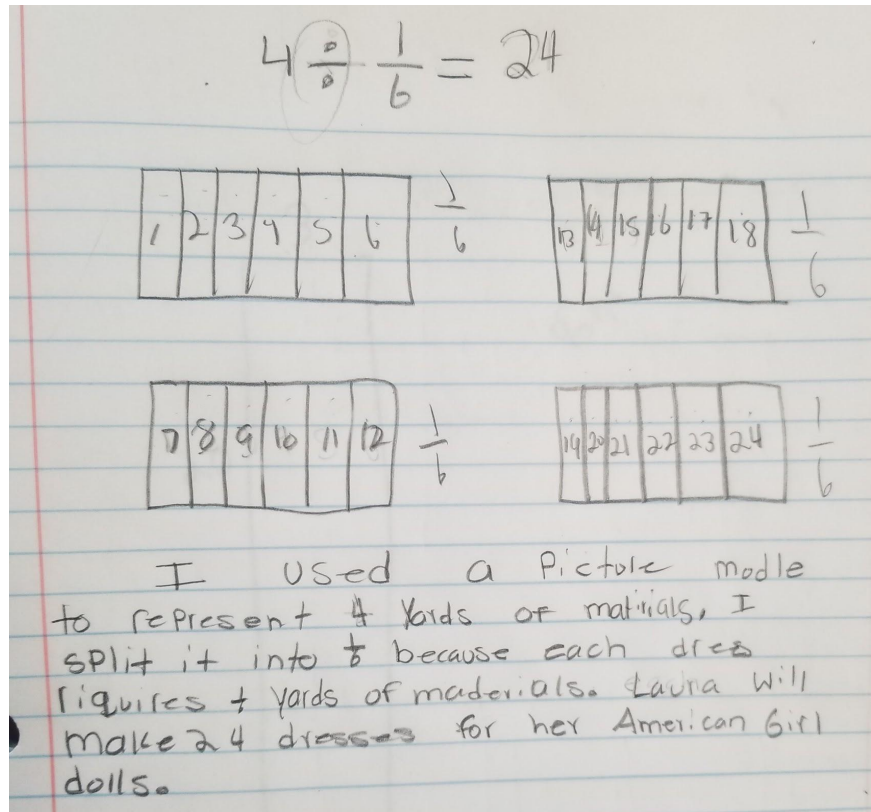 4 ÷ 1/6 = 24
1 2 3 4 5 6 1/6
13 14 15 16 17 18 1/6
7 8 9 10 11 12 1/6
19 20 21 22 23 24 1/6
I used a Picture modle
to represent 4 Yards of matirials. I
split it into 1/6 because each dres
riquires yards of maderials. Laura will
make 24 dresses for her American Girl
dolls.